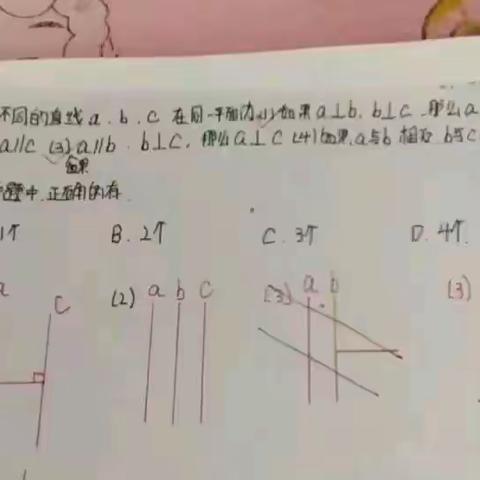 不同的直线a、b、c 在同一平面内,(1)如果a⊥b, b⊥c, 那么a
a//c (3) a//b b⊥c, 那么a⊥c (4)如果,a与b 相交 b与c
如果
题中,正确的有
1个 B. 2个 C. 3个 D. 4个
a c (2) a b c (3) a b (3)